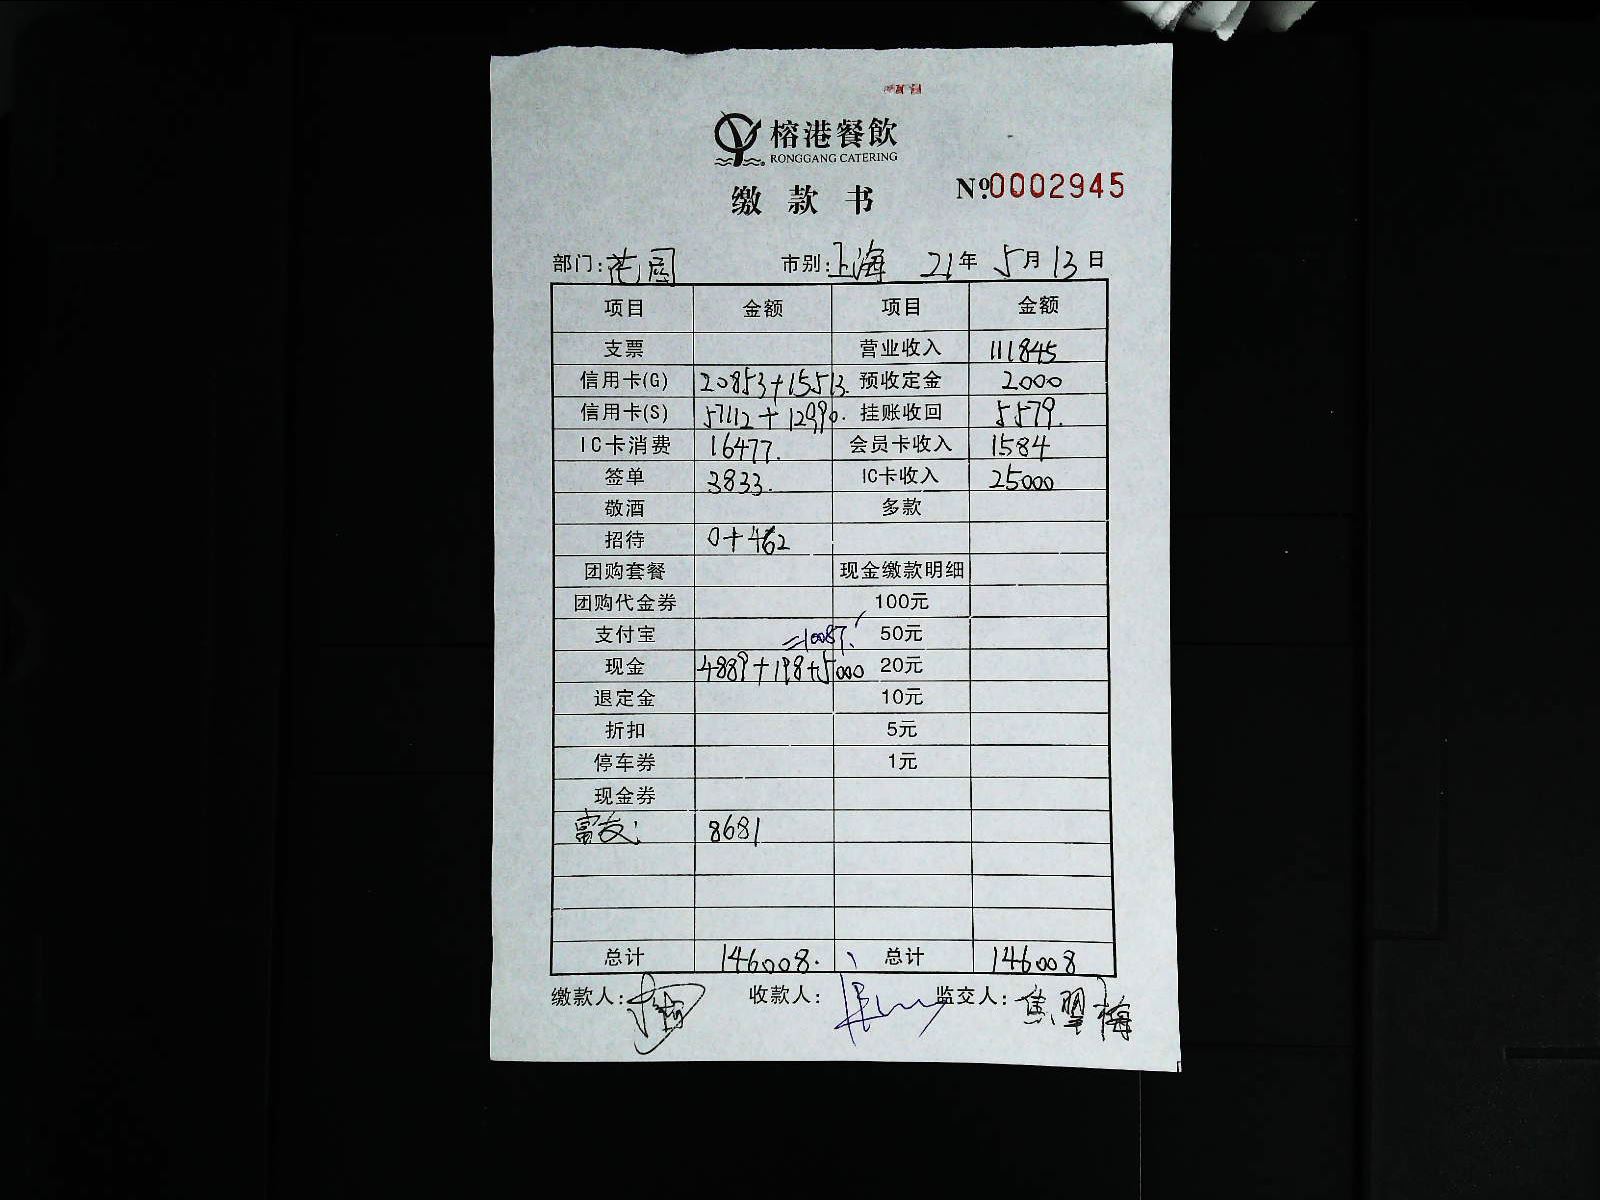 榕港餐飲
RONGGANG CATERING
缴款书 Nº.0002945
部门:花园 市别:上海 21年5月13日
项目 金额 项目 金额
支票 营业收入 111845
信用卡(G) 20853+15513. 预收定金 2000
信用卡(S) 57112+12990. 挂账收回 5579.
IC卡消费 16477. 会员卡收入 1584
签单 3833. IC卡收入 25000
敬酒 多款
招待 0+462
团购套餐 现金缴款明细
团购代金券 100元
支付宝 =10087. 50元
现金 4889+198+5000 20元
退定金 10元
折扣 5元
停车券 1元
现金券
富友: 8681
总计 146008. 总计 146008
缴款人: 收款人: 监交人:焦翠梅